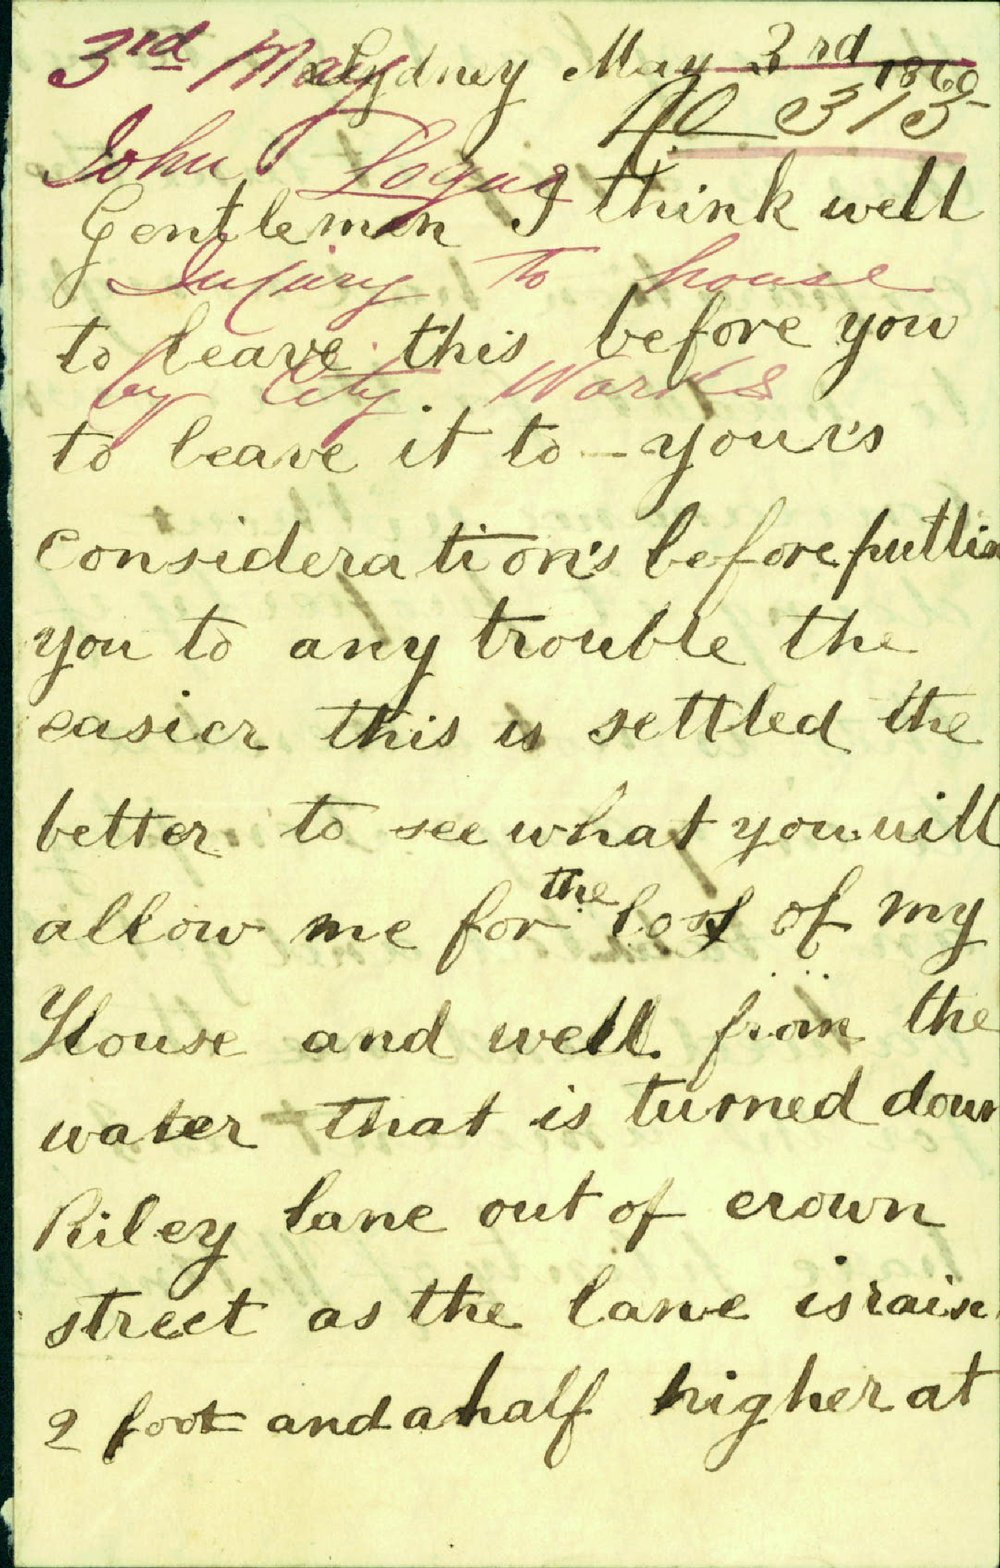 3rd May Sydney May 3rd 1860
No 313
John Logue
Gentlemen I think well
Injury to house
to leave this before you
by City Works
to leave it to - your's
consideration's before puttin
you to any trouble the
easier this is settled the
better to see what you will
allow me for the loss of my
House and well from the
water that is turned down
Riley lane out of crown
street as the lane is raise
2 foot and a half higher at